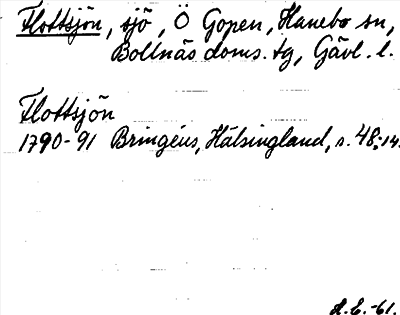 Flottsjön, sjö, Ö Gopen, Hanebo sn,
Bollnäs doms. tg, Gävl. l.
Flottsjön
1790-91 Bringéus, Hälsingland, s. 48:14.
A.E. -61.